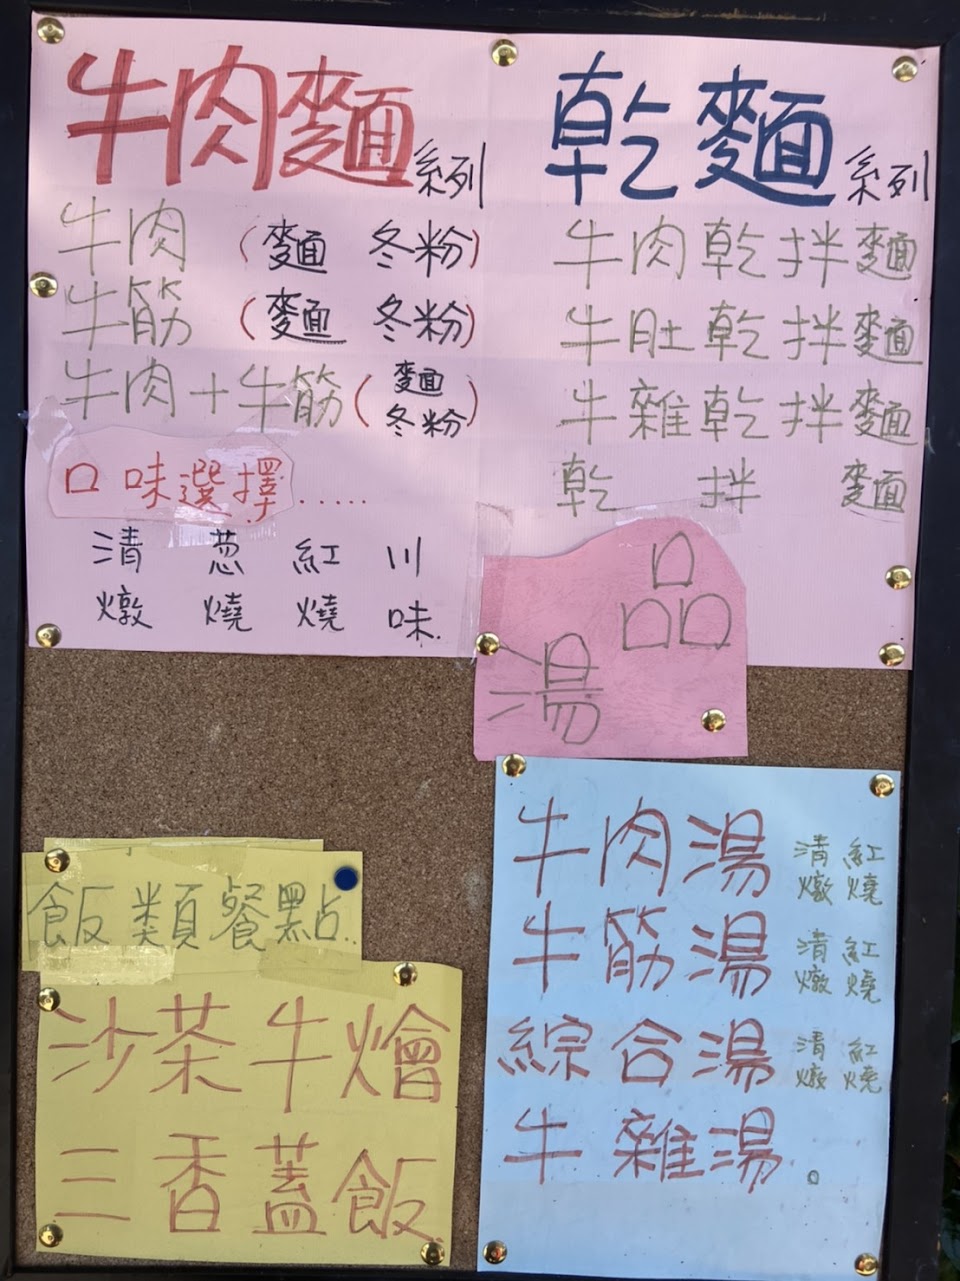 牛肉麵系列
牛肉(麵 冬粉)
牛筋(麵 冬粉)
牛肉+牛筋(麵 冬粉)
口味選擇.....
清燉 葱燒 紅燒 川味.
乾麵系列
牛肉乾拌麵
牛肚乾拌麵
牛雜乾拌麵
乾拌麵
湯品
牛肉湯 清燉 紅燒
牛筋湯 清燉 紅燒
綜合湯 清燉 紅燒
牛雜湯。
飯類餐點..
沙茶牛燴
三香蓋飯